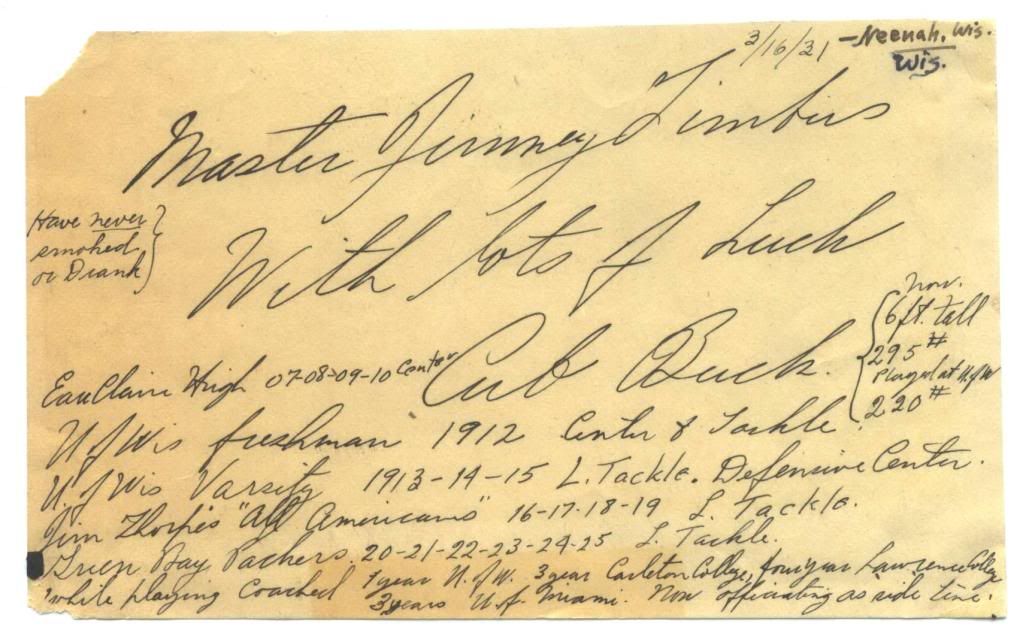 3/16/31 - Neenah. Wis.
Wis.
Master Jimmey Limbirs
With lots of Luck
Cub Buck.
Have never
smoked
or Drank
Now.
6 ft. tall
295 #
Played at U of W
220 #
Eau Claire High 07-08-09-10 Center
U of Wis freshman 1912 Center & Tackle.
U of Wis Varsity 1913-14-15 L. Tackle. Defensive Center.
Jim Thorpes "All Americans" 16-17-18-19 L. Tackle.
Green Bay Packers. 20-21-22-23-24-25 L. Tackle.
while playing Coached 1 year U. of W. 3 year Carleton College, four year Lawrence College
3 years U. of Miami. Now officiating as side line.